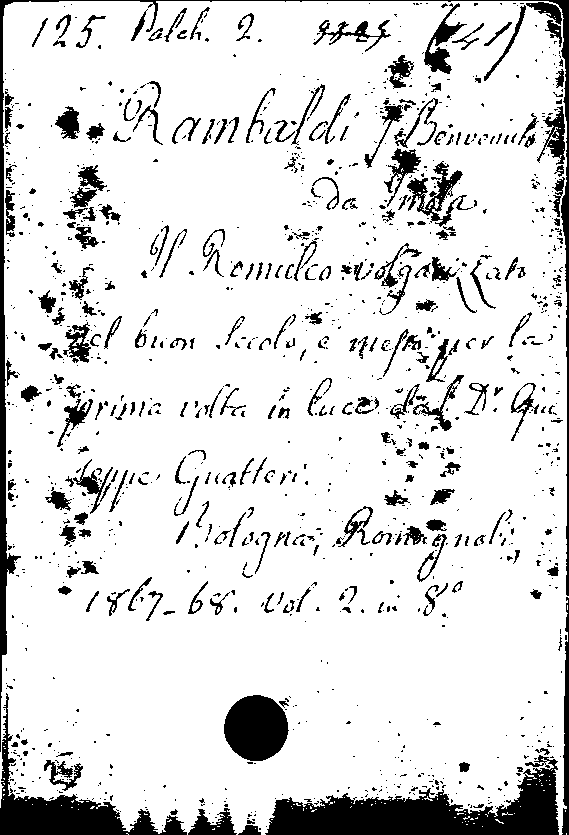 125. Palch. 2. (41)
Rambaldi (Benvenuto)
da Imola.
Il Romuleo volgarizzato
nel buon secolo, e messo per la
prima volta in luce dal D.r Giu
seppe Guatteri.
Bologna, Romagnoli,
1867-68. vol. 2. in 8.o